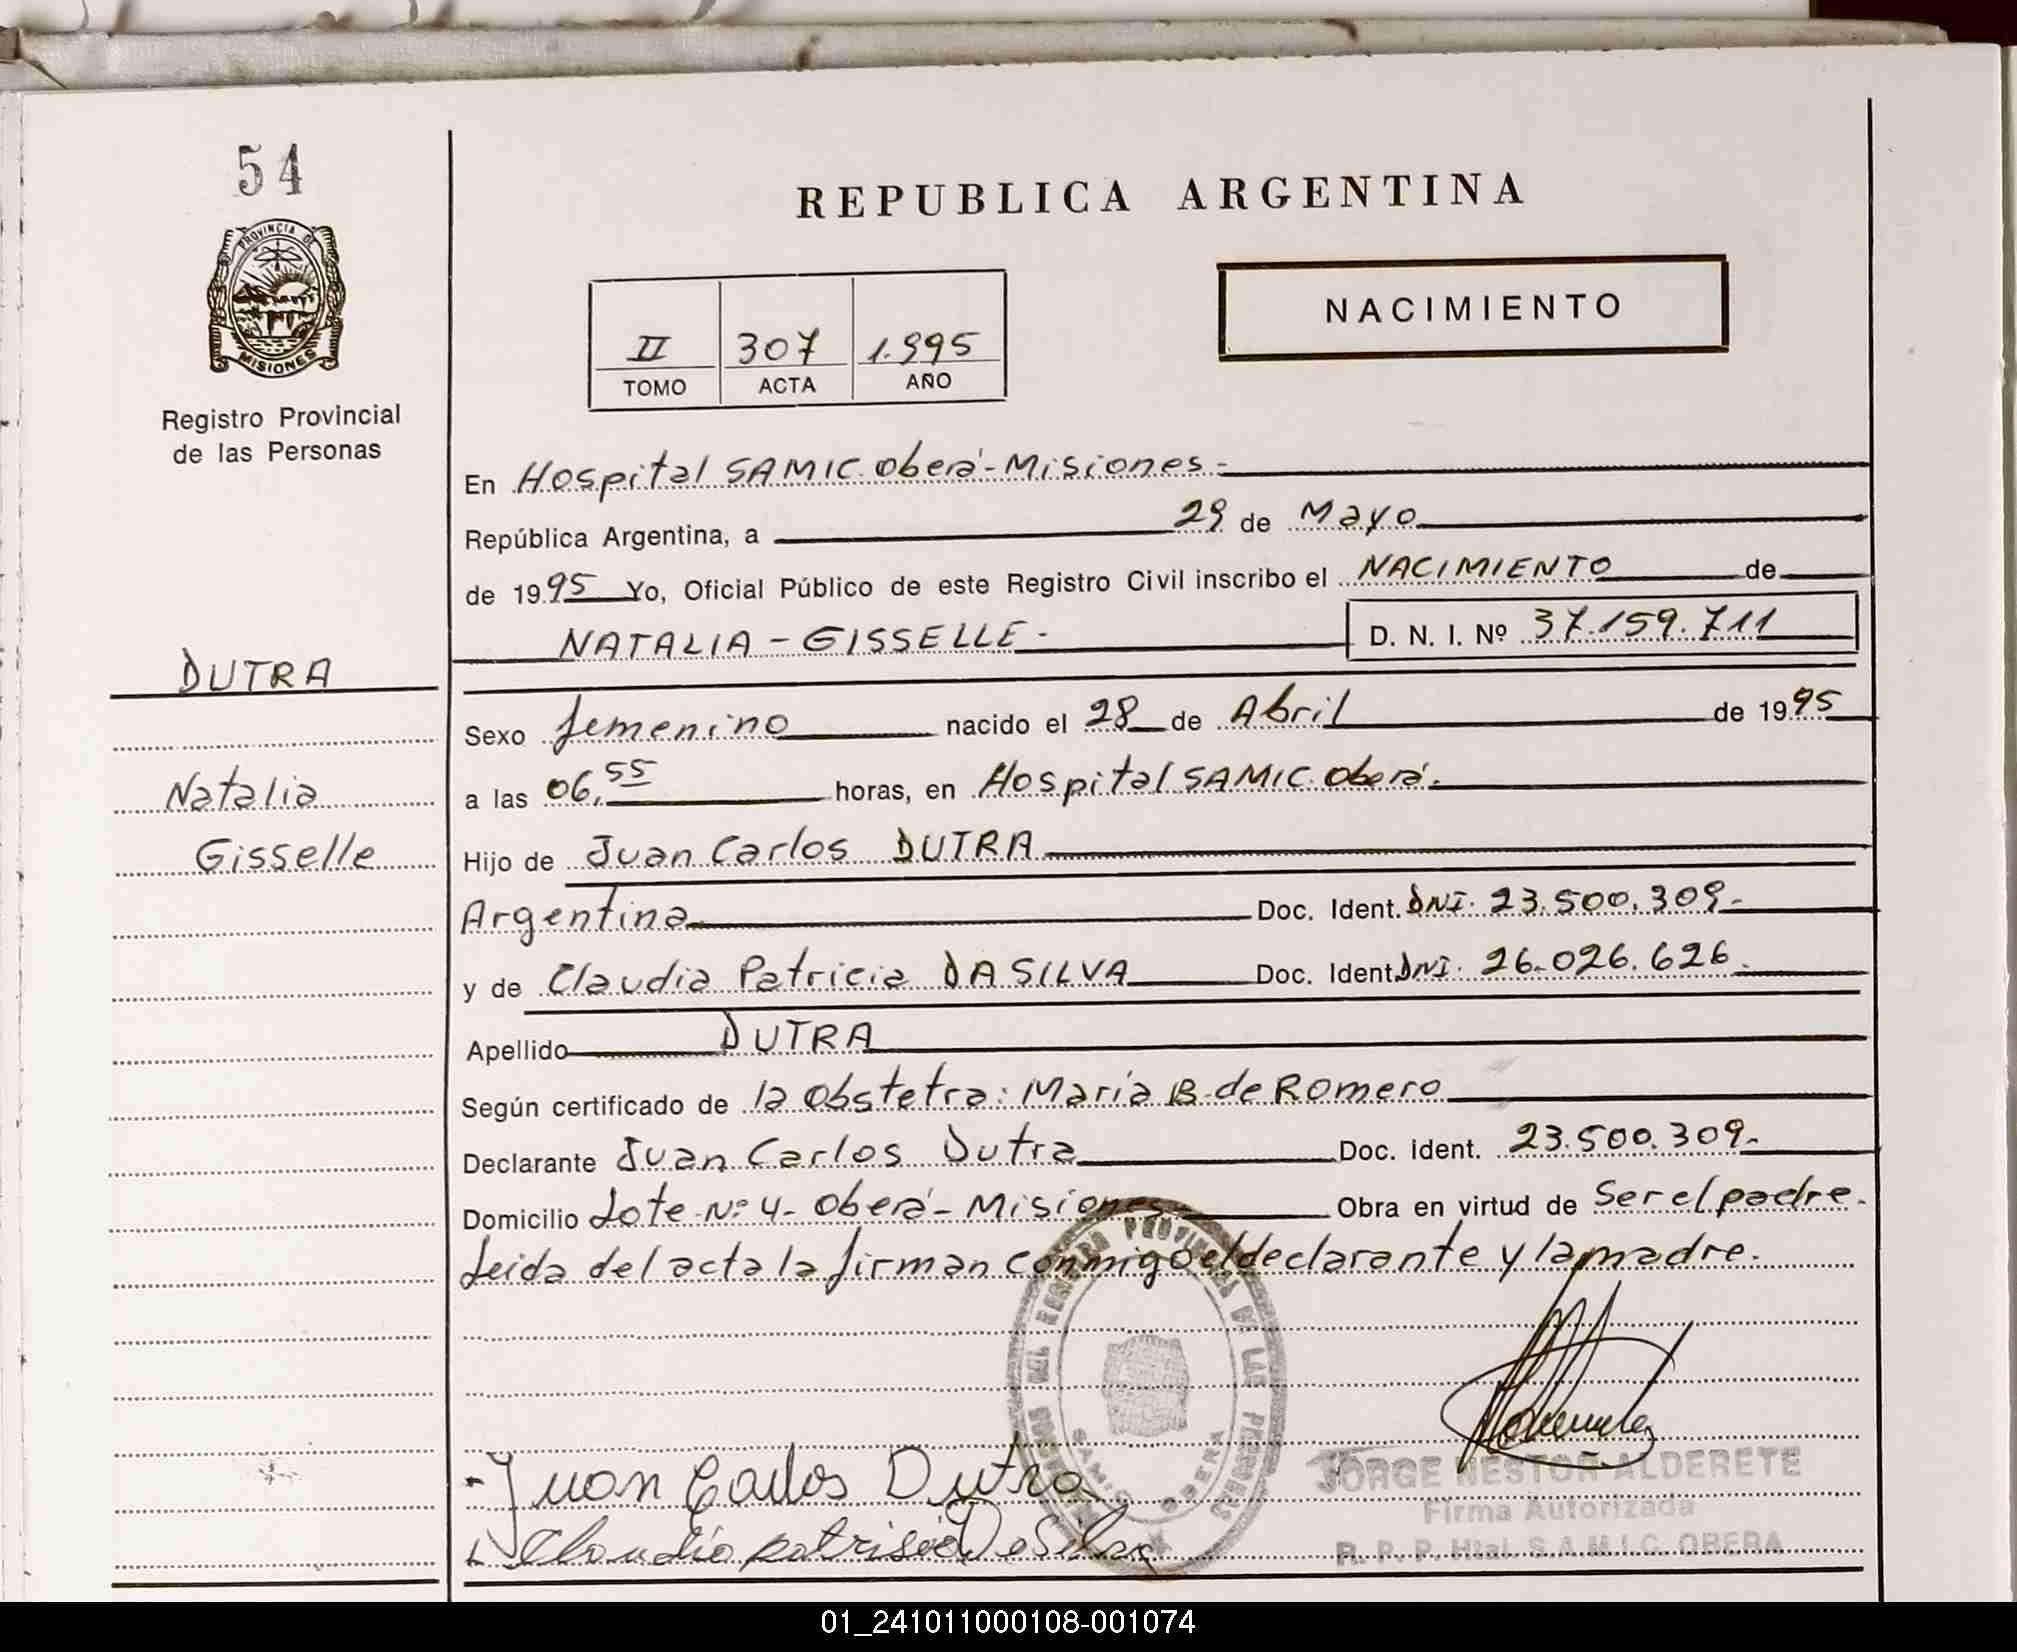 54
REPUBLICA ARGENTINA
PROVINCIA DE
MISIONES
Registro Provincial
de las Personas
NACIMIENTO
II 307 1.995
TOMO ACTA AÑO
En Hospital SAMIC. Oberá - Misiones.-
República Argentina, a 29 de Mayo
de 1995 Yo, Oficial Público de este Registro Civil inscribo el NACIMIENTO de
NATALIA - GISSELLE.- D. N. I. Nº 37.159.711
DUTRA
Natalia
Gisselle
Sexo femenino nacido el 28 de Abril de 1995
a las 06,55 horas, en Hospital SAMIC. Oberá.-
Hijo de Juan Carlos DUTRA
Argentina Doc. Ident. DNI. 23.500.309.-
y de Claudia Patricia DA SILVA Doc. Ident. DNI. 26.026.626.-
Apellido DUTRA
Según certificado de la Obstetra: María B. de Romero
Declarante Juan Carlos Dutra Doc. ident. 23.500.309.-
Domicilio Lote Nº 4 - Oberá - Misiones Obra en virtud de Ser el padre.
Leida del acta la firman conmigo el declarante y la madre.
Juan Carlos Dutra
JORGE NESTOR ALDERETE
Firma Autorizada
Claudia patrisia Da Silva
R. P. P. Htal. S.A.M.I.C. OBERA
01_241011000108-001074